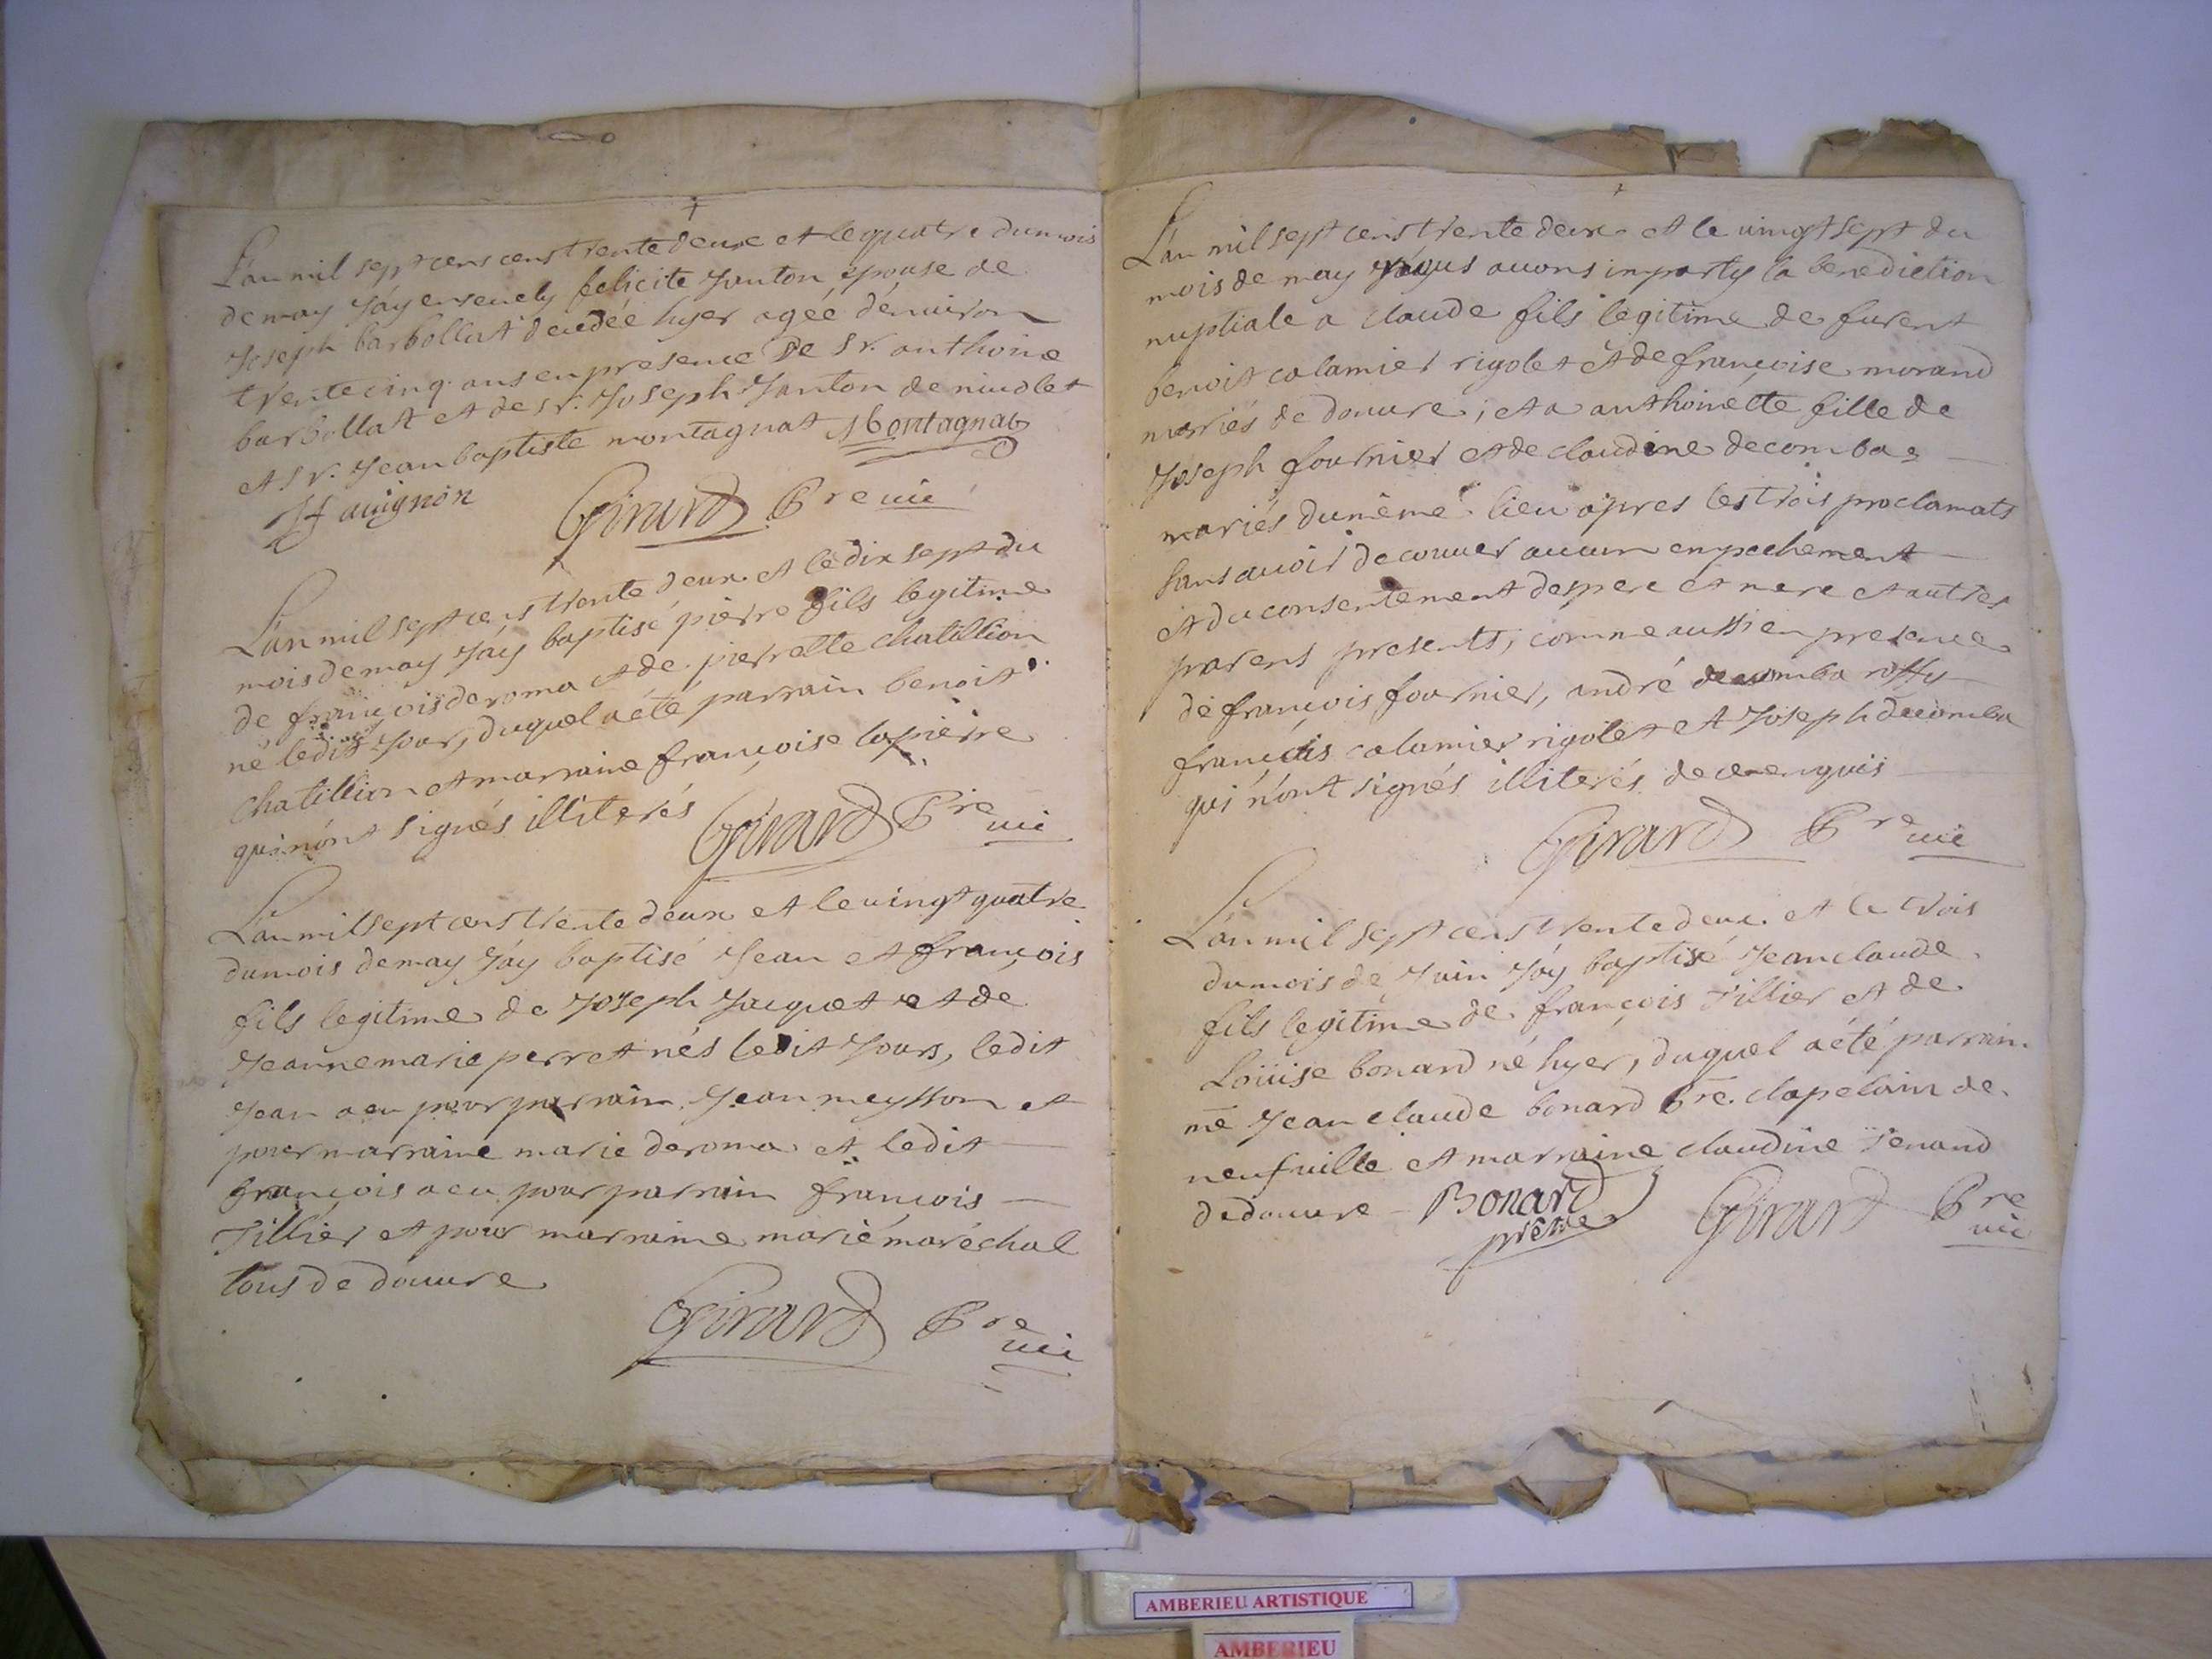 L'an mil sept cens cens trente deux et le quatre du mois
de may j'áy ensevely felicite Janton épouse de
Joseph barbollat decedéé hyer agéé d'énuiron
trente cinq ans en presence de sr. anthoine
barbollat et de sr. Joseph Janton de niuolet
et sr. Jean baptiste montagnat Montagnat
auignon Girard Pre uic
L'an mil sept cens trente deux et le dix sept du
mois de may j'áy baptisé pierre fils legitime
de françois deroma et de pierrette chatillion
né ledit jour, duquel a été parrain benoit
chatillion et marraine françoise lapierre
qui n'ont signés illiterés Girard Pre uic
L'an mil sept cens trente deux et le uingt quatre
du mois de may j'áy baptisé Jean et françois
fils legitime de Joseph Jacquet et de
Jeanne marie perret nés ledit jours, ledit
Jean a eu pour parrain Jean meysson et
pour marraine marie deroma et ledit
françois a eu pour parrain françois
Tillier et pour marraine marie maréchal
tous de douure
Girard Pre uic
L'an mil sept cens trente deux et le uingt sept du
mois de may nous auons imparty la benediction
nuptiale a claude fils legitime de furent
benoit calamier rigolet et de françoise morand
mariés de douure; et a anthoinette fille de
Joseph fournier et de claudine decombas
mariés du même lieu apres les trois proclamats
sans auoir decouuer aucun empechement
et du consentement des pere et mere et autres
parens presents, comme aussi en presence
de françois fournier, andré decomba roffy
françois calamier rigolet et Joseph decomba
qui n'ont signés illiterés de ce enquis
Girard Pre uic
L'an mil sept cens trente deux et le trois
du mois de Juin j'áy baptisé Jean claude
fils legitime de françois Tillier et de
Loüise bonard né hyér, duquel a été parrain
me Jean claude bonard pre. chapelain de
neufuille et marraine claudine Tenand
de douure Bonard Girard Pre
prêtre uic
AMBERIEU ARTISTIQUE
AMBERIEU